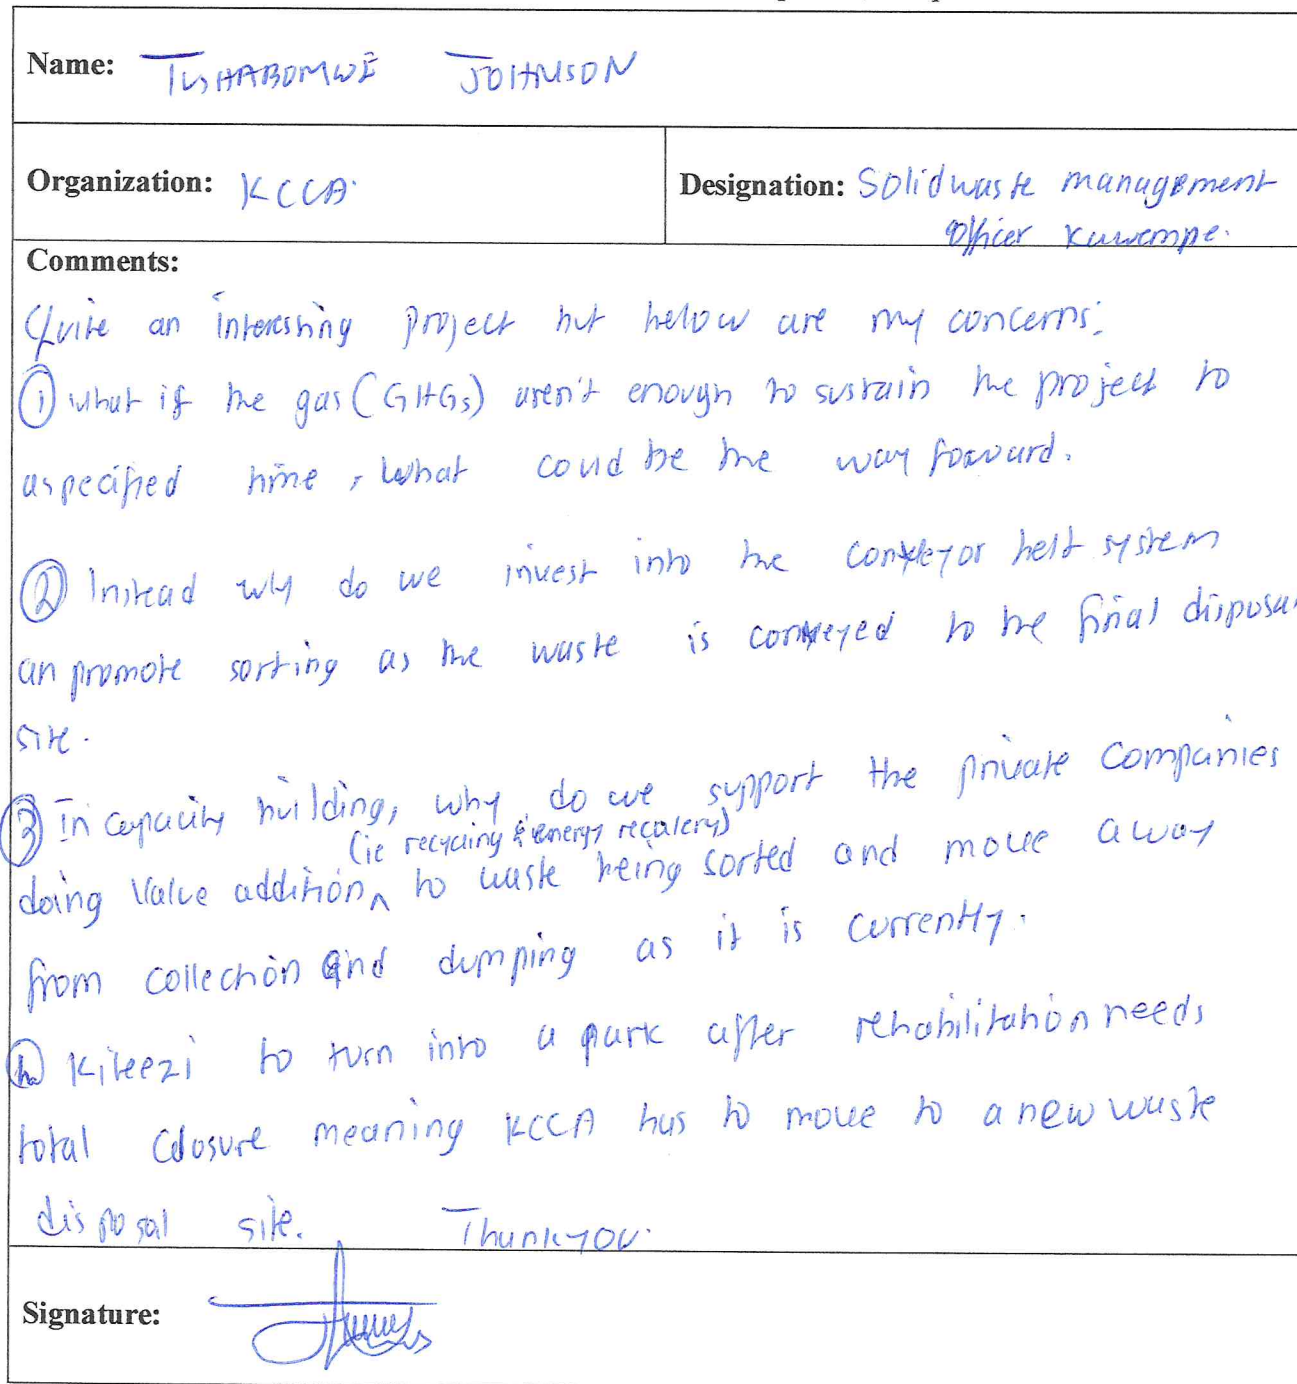 Name: TUSHABOMWE JOHNSON
Organization: KCCA.
Designation: Solid waste management
Officer Kawempe.
Comments:
Quite an interesting project but below are my concerns;
① what if the gas (GHGs) aren't enough to sustain the project to
aspecified time, what could be the way forward.
② Instead why do we invest into the conveyor belt system
an promote sorting as the waste is conveyed to the final disposal
site.
③ In capacity building, why do we support the private companies
(ie recycling & energy recovery)
doing value addition ^ to waste being sorted and move away
from collection and dumping as it is currently.
Kiteezi to turn into a park after rehabilitation needs
total closure meaning KCCA has to move to a new waste
disposal site. Thankyou.
Signature: